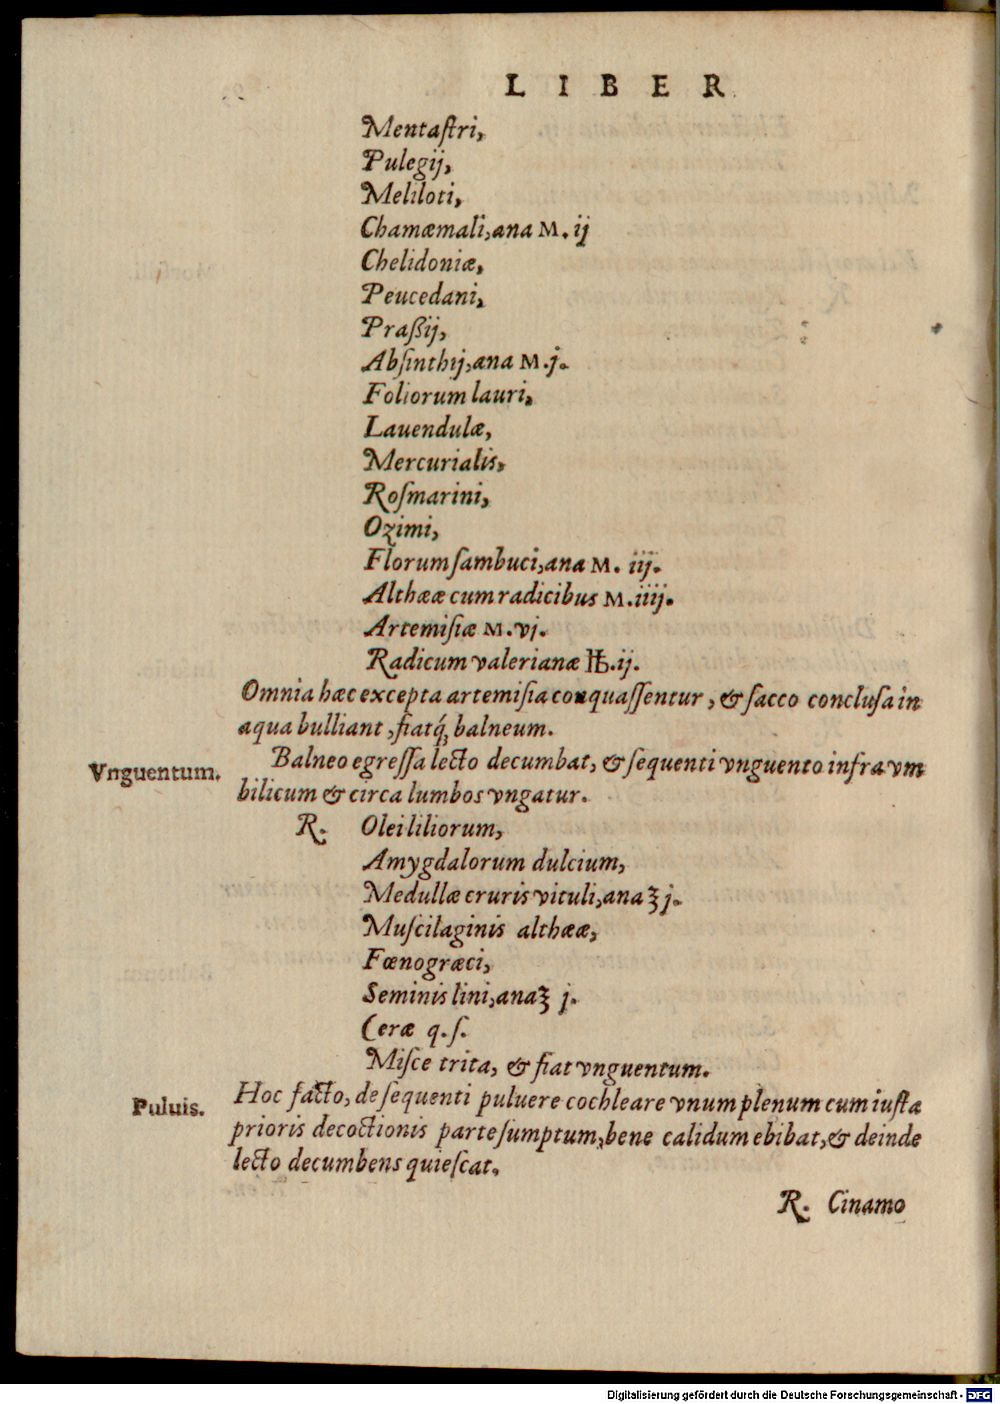 LIBER
Mentaſtri,
Pulegij,
Meliloti,
Chamæmali, ana M. ij
Chelidoniæ,
Peucedani,
Praßij,
Abſinthij, ana M. j.
Foliorum lauri,
Lauendulæ,
Mercurialis,
Roſmarini,
Ozimi,
Florum ſambuci, ana M. iij.
Althææ cum radicibus M. iiij.
Artemiſiæ M. vj.
Radicum valerianæ ℔. ij.
Omnia hæc excepta artemiſia conquaſſentur, & ſacco concluſa in
aqua bulliant, fiatq́ꝫ balneum.
Vnguentum.
Balneo egreſſa lecto decumbat, & ſequenti vnguento infra vm
bilicum & circa lumbos vngatur.
R. Olei liliorum,
Amygdalorum dulcium,
Medullæ cruris vituli, ana ʒ j.
Muſcilaginis althææ,
Fœnogræci,
Seminis lini, ana ʒ j.
Ceræ q. ſ.
Miſce trita, & fiat vnguentum.
Puluis.
Hoc facto, de ſequenti puluere cochleare vnum plenum cum iuſta
prioris decoctionis parte ſumptum, bene calidum ebibat, & deinde
lecto decumbens quieſcat.
R. Cinamo
Digitalisierung gefördert durch die Deutsche Forschungsgemeinschaft - DFG